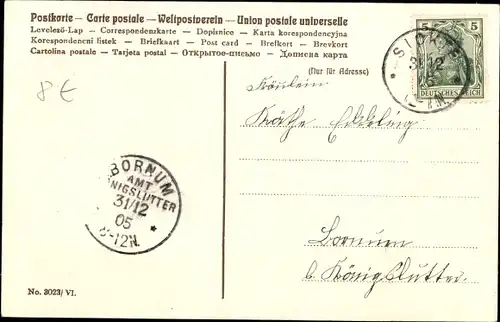 Postkarte – Carte postale – Weltpostverein – Union postale universelle
Levelező-Lap – Correspondenzkarte – Dopisnice – Karta korespondencyjna
Korespondencni listek – Briefkaart – Post card – Brefkort – Brevkort
Cartolina postale – Tarjeta postal – Открытое-письмо – Дописна карта
(Nur für Adresse)
5 5
DEUTSCHES REICH
31 12
8 €
Fräulein
Käthe
BORNUM
AMT
NIGSLUTTER
31/12
05
-12N.
Bornum
b. Königslutter.
No. 3023/VI.